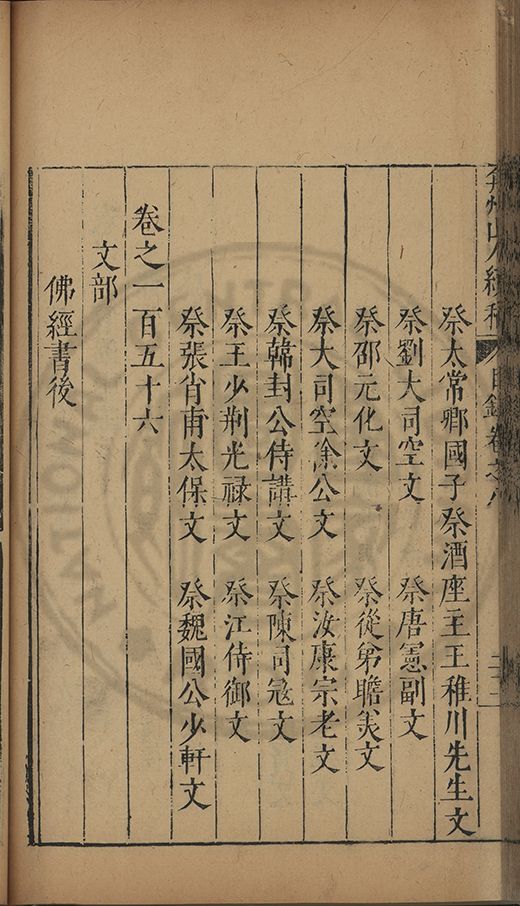 弇州山人續稿 目錄卷之八
祭太常鄉國子祭酒座主王稚川先生文
祭劉大司空文 祭唐憲副文
祭邵元化文 祭從弟瞻美文
祭大司空徐公文 祭汝康宗老文
祭韓封公侍講文 祭陳司寇文
祭王少荆光禄文 祭江侍御文
祭張肖甫太保文 祭魏國公少軒文
卷之一百五十六
文部
佛經書後